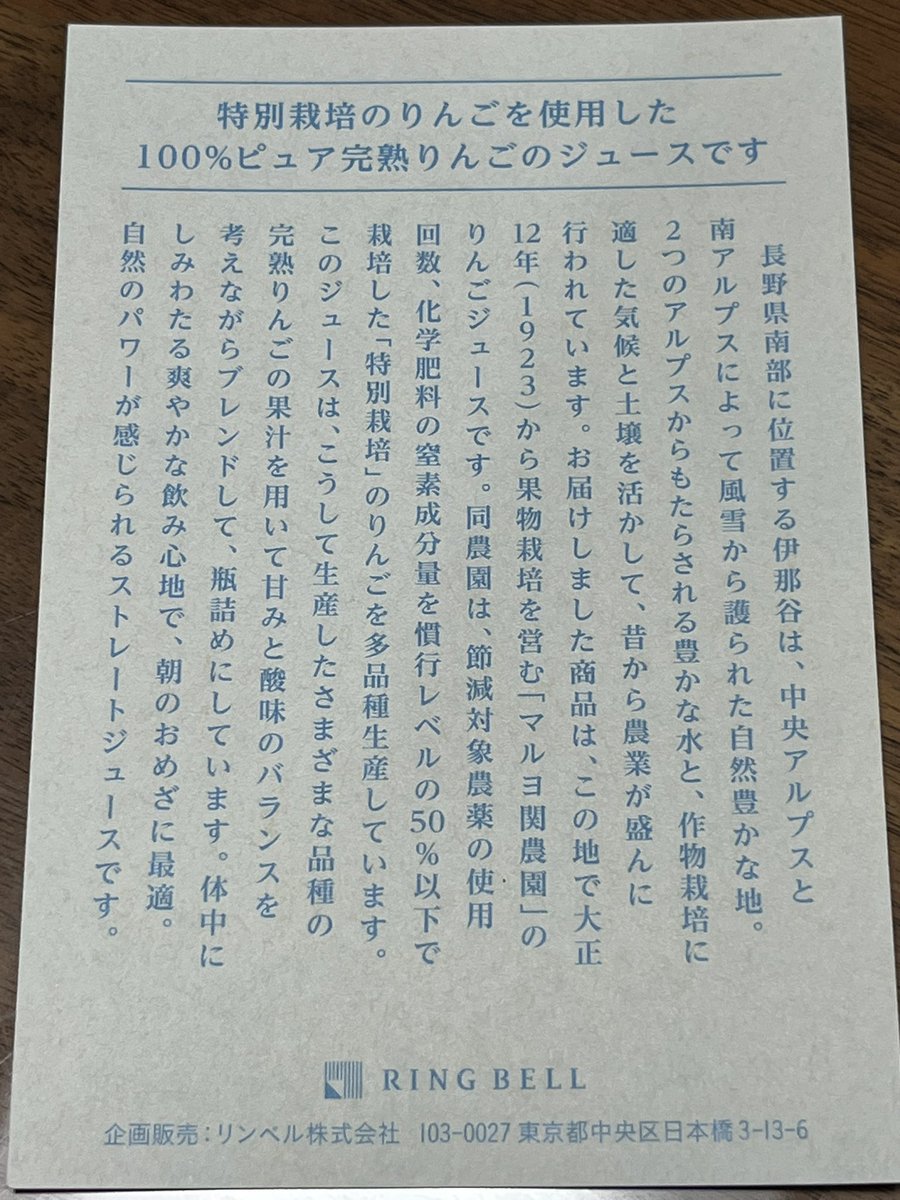 特別栽培のりんごを使用した
100%ピュア完熟りんごのジュースです
長野県南部に位置する伊那谷は、中央アルプスと
南アルプスによって風雪から護られた自然豊かな地。
2つのアルプスからもたらされる豊かな水と、作物栽培に
適した気候と土壌を活かして、昔から農業が盛んに
行われています。お届けしました商品は、この地で大正
12年(1923)から果物栽培を営む「マルヨ関農園」の
りんごジュースです。同農園は、節減対象農薬の使用
回数、化学肥料の窒素成分量を慣行レベルの50%以下で
栽培した「特別栽培」のりんごを多品種生産しています。
このジュースは、こうして生産したさまざまな品種の
完熟りんごの果汁を用いて甘みと酸味のバランスを
考えながらブレンドして、瓶詰めにしています。体中に
しみわたる爽やかな飲み心地で、朝のおめざに最適。
自然のパワーが感じられるストレートジュースです。
RING BELL
企画販売:リンベル株式会社 103-0027 東京都中央区日本橋3-13-6